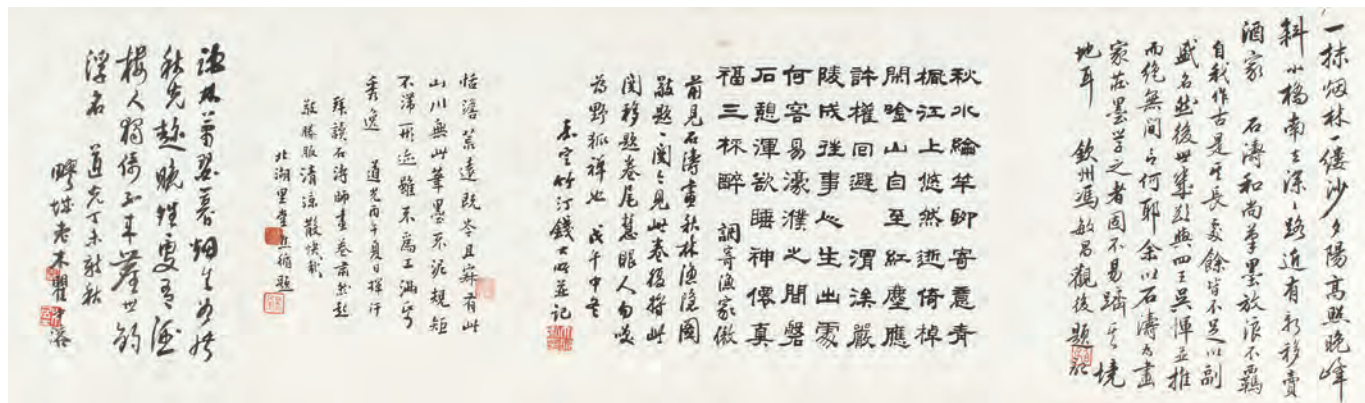 一抹烟林一縷沙夕陽高照晚峰
斜小橋南去深深路近有新移賣
酒家 石濤和尚筆墨放浪不羈
自我作古是其長處餘皆不足以副
盛名然後世幾欲與四王吳惲並推
而絕無間言何耶余以石濤為畫
家莊墨學之者固不易躋其境
地耳 欽州馮敏昌觀後題記
秋水綸竿聊寄意青
楓江上悠然逝倚棹
閒唫山自至紅塵應
許權回避 渭溪嚴
陵成往事人生出處
何容易濠濮之間磐
石憩渾欲睡神僊真
福三杯醉 調寄漁家傲
前見石濤畫秋林漁隱圖
敬題一闋今見此卷復將此
闋移題卷尾慧眼人勿嗤
為野狐禪也 戊午中冬
嘉定竹汀錢大昕並記
恬澹荒遠既岑且寂有此
山川無此筆墨不泥規矩
不滯形迹雖不為工滿兮
秀逸 道光丙午夏日揮汗
拜讀石濤師畫卷肅然起
敬勝服清涼散快哉
北湖里堂焦循題
疏林蕭瑟暮烟生
秋光趁晚晴更有酒
樓人獨倚不來塵世釣
浮名 道光丁未新秋
疁城老木瞿中溶